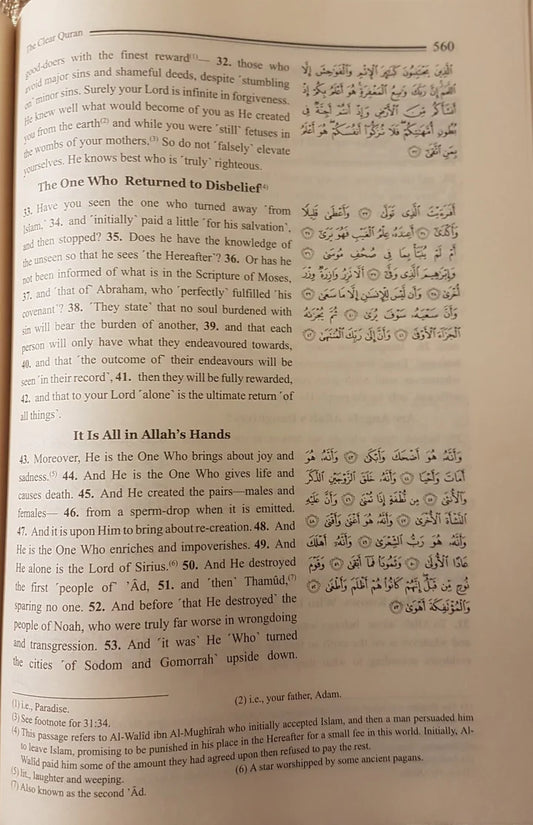 The Clear Quran 560
good-doers with the finest reward(1)— 32. those who
avoid major sins and shameful deeds, despite ˹stumbling
on˺ minor sins. Surely your Lord is infinite in forgiveness.
He knew well what would become of you as He created
you from the earth(2) and while you were ˹still˺ fetuses in
the wombs of your mothers.(3) So do not ˹falsely˺ elevate
yourselves. He knows best who is ˹truly˺ righteous.
The One Who Returned to Disbelief(4)
33. Have you seen the one who turned away ˹from
Islam,˺ 34. and ˹initially˺ paid a little ˹for his salvation˺,
and then stopped? 35. Does he have the knowledge of
the unseen so that he sees ˹the Hereafter˺? 36. Or has he
not been informed of what is in the Scripture of Moses,
37. and ˹that of˺ Abraham, who ˹perfectly˺ fulfilled ˹his
covenant˺? 38. ˹They state˺ that no soul burdened with
sin will bear the burden of another, 39. and that each
person will only have what they endeavoured towards,
40. and that ˹the outcome of˺ their endeavours will be
seen ˹in their record˺, 41. then they will be fully rewarded,
42. and that to your Lord ˹alone˺ is the ultimate return ˹of
all things˺.
It Is All in Allah's Hands
43. Moreover, He is the One Who brings about joy and
sadness.(5) 44. And He is the One Who gives life and
causes death. 45. And He created the pairs—males and
females— 46. from a sperm-drop when it is emitted.
47. And it is upon Him to bring about re-creation. 48. And
He is the One Who enriches and impoverishes. 49. And
He alone is the Lord of Sirius.(6) 50. And He destroyed
the first ˹people of˺ 'Âd, 51. and ˹then˺ Thamûd,(7)
sparing no one. 52. And before ˹that He destroyed˺ the
people of Noah, who were truly far worse in wrongdoing
and transgression. 53. And ˹it was˺ He ˹Who˺ turned
the cities ˹of Sodom and Gomorrah˺ upside down.
الَّذِينَ يَجْتَنِبُونَ كَبَائِرَ الْإِثْمِ وَالْفَوَاحِشَ إِلَّا
اللَّمَمَ إِنَّ رَبَّكَ وَاسِعُ الْمَغْفِرَةِ هُوَ أَعْلَمُ بِكُمْ إِذْ
أَنشَأَكُم مِّنَ الْأَرْضِ وَإِذْ أَنتُمْ أَجِنَّةٌ فِي
بُطُونِ أُمَّهَاتِكُمْ فَلَا تُزَكُّوا أَنفُسَكُمْ هُوَ أَعْلَمُ
بِمَنِ اتَّقَىٰ ٣٢
أَفَرَأَيْتَ الَّذِي تَوَلَّىٰ ٣٣ وَأَعْطَىٰ قَلِيلًا
وَأَكْدَىٰ ٣٤ أَعِندَهُ عِلْمُ الْغَيْبِ فَهُوَ يَرَىٰ ٣٥
أَمْ لَمْ يُنَبَّأْ بِمَا فِي صُحُفِ مُوسَىٰ ٣٦
وَإِبْرَاهِيمَ الَّذِي وَفَّىٰ ٣٧ أَلَّا تَزِرُ وَازِرَةٌ وِزْرَ
أُخْرَىٰ ٣٨ وَأَن لَّيْسَ لِلْإِنسَانِ إِلَّا مَا سَعَىٰ ٣٩
وَأَنَّ سَعْيَهُ سَوْفَ يُرَىٰ ٤٠ ثُمَّ يُجْزَاهُ
الْجَزَاءَ الْأَوْفَىٰ ٤١ وَأَنَّ إِلَىٰ رَبِّكَ الْمُنتَهَىٰ ٤٢
وَأَنَّهُ هُوَ أَضْحَكَ وَأَبْكَىٰ ٤٣ وَأَنَّهُ هُوَ
أَمَاتَ وَأَحْيَا ٤٤ وَأَنَّهُ خَلَقَ الزَّوْجَيْنِ الذَّكَرَ
وَالْأُنثَىٰ ٤٥ مِن نُّطْفَةٍ إِذَا تُمْنَىٰ ٤٦ وَأَنَّ عَلَيْهِ
النَّشْأَةَ الْأُخْرَىٰ ٤٧ وَأَنَّهُ هُوَ أَغْنَىٰ وَأَقْنَىٰ ٤٨
وَأَنَّهُ هُوَ رَبُّ الشِّعْرَىٰ ٤٩ وَأَنَّهُ أَهْلَكَ
عَادًا الْأُولَىٰ ٥٠ وَثَمُودَا فَمَا أَبْقَىٰ ٥١ وَقَوْمَ
نُوحٍ مِّن قَبْلُ إِنَّهُمْ كَانُوا هُمْ أَظْلَمَ وَأَطْغَىٰ ٥٢
وَالْمُؤْتَفِكَةَ أَهْوَىٰ ٥٣
(1) i.e., Paradise. (2) i.e., your father, Adam.
(3) See footnote for 31:34.
(4) This passage refers to Al-Walîd ibn Al-Mughîrah who initially accepted Islam, and then a man persuaded him
to leave Islam, promising to be punished in his place in the Hereafter for a small fee in this world. Initially, Al-
Walîd paid him some of the amount they had agreed upon then refused to pay the rest.
(5) lit., laughter and weeping. (6) A star worshipped by some ancient pagans.
(7) Also known as the second 'Âd.